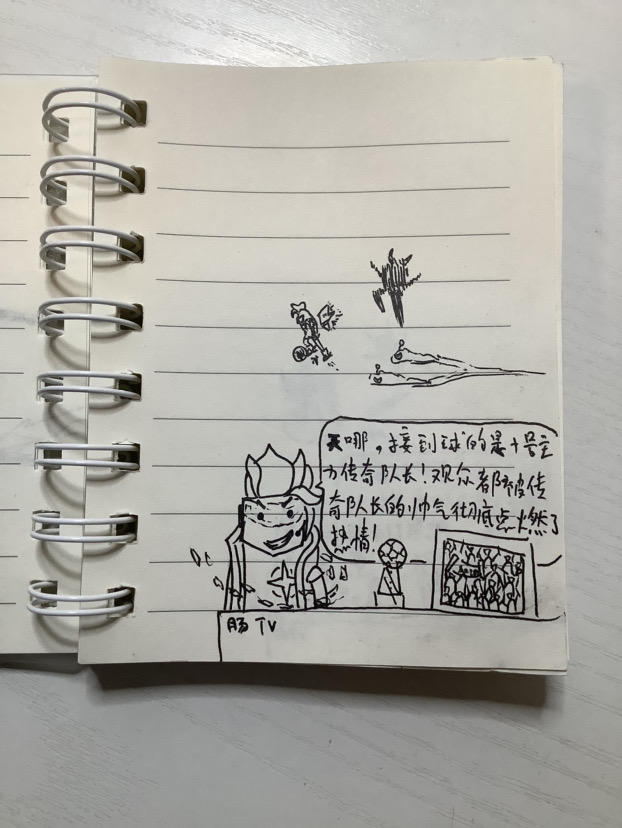 天哪，接到球的是十号主
力传奇队长！观众都被传
奇队长的帅气彻底点燃了
热情！
肠TV